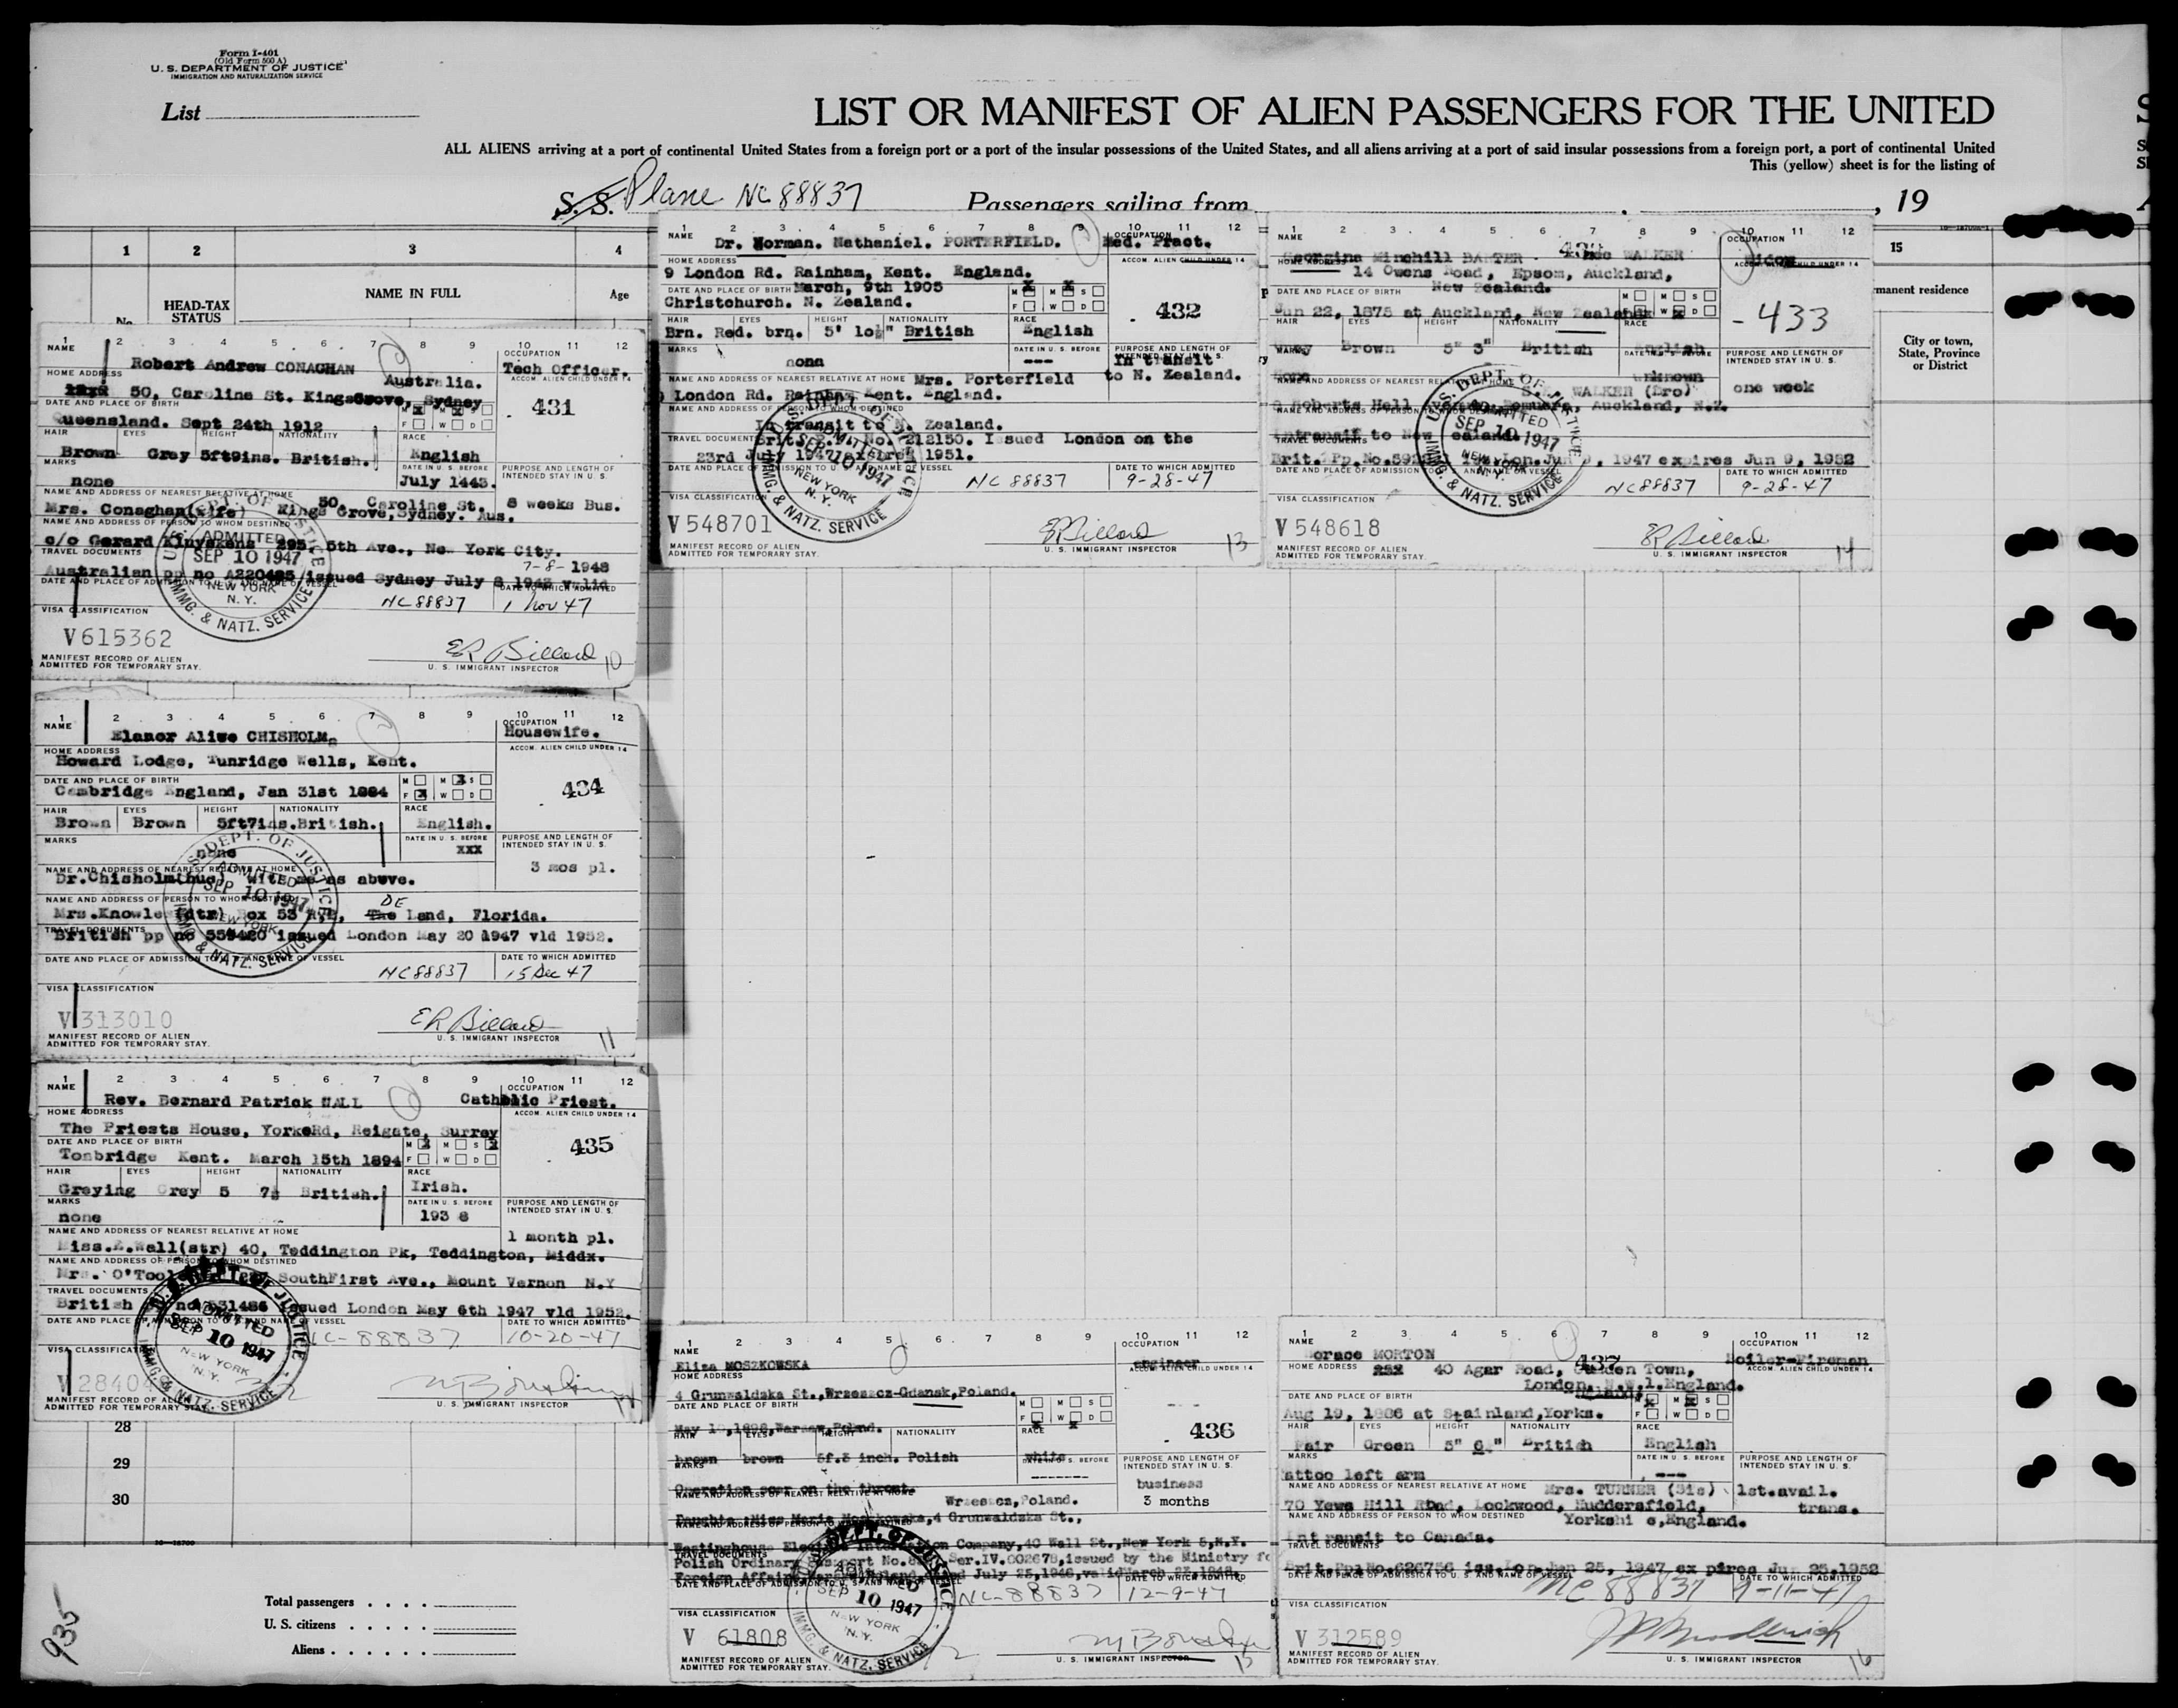 Form I-401
(Old Form 500 A)
U. S. DEPARTMENT OF JUSTICE
IMMIGRATION AND NATURALIZATION SERVICE
List
LIST OR MANIFEST OF ALIEN PASSENGERS FOR THE UNITED
ALL ALIENS arriving at a port of continental United States from a foreign port or a port of the insular possessions of the United States, and all aliens arriving at a port of said insular possessions from a foreign port, a port of continental United
This (yellow) sheet is for the listing of
S. S. Plane NC 88837 Passengers sailing from , 19
1 2 3 4 15
HEAD-TAX STATUS
NAME IN FULL
Age
No.
manent residence
City or town, State, Province or District
1 2 3 4 5 6 7 8 9 10 11 12
NAME Robert Andrew CONAGHAN
OCCUPATION Tech Officer.
ACCOM. ALIEN CHILD UNDER 14
HOME ADDRESS Australia.
50, Caroline St. KingsGrove, Sydney
431
DATE AND PLACE OF BIRTH
Queensland. Sept 24th 1912
HAIR EYES HEIGHT NATIONALITY RACE
Brown Grey 5ft9ins. British. English
MARKS none
DATE IN U. S. BEFORE July 1443.
PURPOSE AND LENGTH OF INTENDED STAY IN U. S.
8 weeks Bus.
NAME AND ADDRESS OF NEAREST RELATIVE AT HOME 50, Caroline St.
Mrs. Conaghan(wife) Kings Grove, Sydney. Aus.
NAME AND ADDRESS OF PERSON TO WHOM DESTINED
c/o Gerard Kluyskens 295, 5th Ave., New York City.
TRAVEL DOCUMENTS 7-8- 1948
Australian pp no A220485 issued Sydney July 8 1943 valid
DATE AND PLACE OF ADMISSION TO U. S. AND NAME OF VESSEL
DATE TO WHICH ADMITTED
NC 88837 1 Nov 47
VISA CLASSIFICATION
V615362
MANIFEST RECORD OF ALIEN
ADMITTED FOR TEMPORARY STAY.
ER Billard 10
U. S. IMMIGRANT INSPECTOR
U.S. DEPT. OF JUSTICE
ADMITTED
SEP 10 1947
NEW YORK
N. Y.
IMMG. & NATZ. SERVICE
1 2 3 4 5 6 7 8 9 10 11 12
NAME Dr. Norman. Nathaniel. PORTERFIELD.
OCCUPATION Med. Pract.
ACCOM. ALIEN CHILD UNDER 14
HOME ADDRESS
9 London Rd. Rainham, Kent. England.
DATE AND PLACE OF BIRTH March, 9th 1905
Christchurch. N. Zealand.
432
HAIR EYES HEIGHT NATIONALITY RACE
Brn. Red. brn. 5' 10½" British English
MARKS none
DATE IN U. S. BEFORE ---
PURPOSE AND LENGTH OF INTENDED STAY IN U. S.
In transit
to N. Zealand.
NAME AND ADDRESS OF NEAREST RELATIVE AT HOME Mrs. Porterfield
London Rd. Rainham Kent. England.
NAME AND ADDRESS OF PERSON TO WHOM DESTINED
In transit to N. Zealand.
TRAVEL DOCUMENTS Brit. No. 212150. Issued London on the
23rd July 1947 1951.
DATE AND PLACE OF ADMISSION TO U. S. AND NAME OF VESSEL
DATE TO WHICH ADMITTED
NC 88837 9-28-47
VISA CLASSIFICATION
V548701
MANIFEST RECORD OF ALIEN
ADMITTED FOR TEMPORARY STAY.
ER Billard 13
U. S. IMMIGRANT INSPECTOR
U.S. DEPT. OF JUSTICE
SEP 10 1947
NEW YORK
N. Y.
IMMG. & NATZ. SERVICE
1 2 3 4 5 6 7 8 9 10 11 12
NAME
Georgina Minchill BAXTER nee WALKER
OCCUPATION Widow
ACCOM. ALIEN CHILD UNDER 14
HOME ADDRESS
14 Owens Road, Epsom, Auckland,
New Zealand.
DATE AND PLACE OF BIRTH
Jun 22, 1875 at Auckland, New Zealand
- 433
HAIR EYES HEIGHT NATIONALITY RACE
Brown 5" 3" British English
MARKS
DATE IN U. S. BEFORE unknown
PURPOSE AND LENGTH OF INTENDED STAY IN U. S.
one week
NAME AND ADDRESS OF NEAREST RELATIVE AT HOME
WALKER (Bro)
Roberts Hall Remuera, Auckland, N.Z.
NAME AND ADDRESS OF PERSON TO WHOM DESTINED
Intransit to New Zealand.
TRAVEL DOCUMENTS
Brit. Pp. No. 1947 expires Jun 9, 1952
DATE AND PLACE OF ADMISSION TO U. S. AND NAME OF VESSEL
DATE TO WHICH ADMITTED
NC88837 9-28-47
VISA CLASSIFICATION
V548618
MANIFEST RECORD OF ALIEN
ADMITTED FOR TEMPORARY STAY.
ER Billard 14
U. S. IMMIGRANT INSPECTOR
U.S. DEPT. OF JUSTICE
ADMITTED
SEP 10 1947
NEW YORK
N. Y.
IMMG. & NATZ. SERVICE
1 2 3 4 5 6 7 8 9 10 11 12
NAME Elanor Alice CHISHOLM.
OCCUPATION Housewife.
ACCOM. ALIEN CHILD UNDER 14
HOME ADDRESS
Howard Lodge, Tunridge Wells, Kent.
DATE AND PLACE OF BIRTH
Cambridge England, Jan 31st 1884
434
HAIR EYES HEIGHT NATIONALITY RACE
Brown Brown 5ft7ins.British. English.
MARKS none
DATE IN U. S. BEFORE xxx
PURPOSE AND LENGTH OF INTENDED STAY IN U. S.
3 mos pl.
NAME AND ADDRESS OF NEAREST RELATIVE AT HOME
Dr.Chisholm(hus) with me as above.
NAME AND ADDRESS OF PERSON TO WHOM DESTINED DE
Mrs.Knowles(dtr) Box 53 The Land, Florida.
TRAVEL DOCUMENTS
British pp no 559420 issued London May 20 1947 vld 1952.
DATE AND PLACE OF ADMISSION TO U. S. AND NAME OF VESSEL
DATE TO WHICH ADMITTED
NC88837 15 Dec 47
VISA CLASSIFICATION
V313010
MANIFEST RECORD OF ALIEN
ADMITTED FOR TEMPORARY STAY.
ER Billard 11
U. S. IMMIGRANT INSPECTOR
U.S. DEPT. OF JUSTICE
ADMITTED
SEP 10 1947
NEW YORK
IMMG. & NATZ. SERVICE
1 2 3 4 5 6 7 8 9 10 11 12
NAME Rev. Bernard Patrick WALL
OCCUPATION Catholic Priest.
ACCOM. ALIEN CHILD UNDER 14
HOME ADDRESS
The Priests House, YorkeRd, Reigate, Surrey
DATE AND PLACE OF BIRTH
Tonbridge Kent. March 15th 1894
435
HAIR EYES HEIGHT NATIONALITY RACE
Greying Grey 5 7½ British. Irish.
MARKS none
DATE IN U. S. BEFORE 193 8
PURPOSE AND LENGTH OF INTENDED STAY IN U. S.
1 month pl.
NAME AND ADDRESS OF NEAREST RELATIVE AT HOME
Miss.E.Wall(str) 40, Teddington Pk, Teddington, Middx.
NAME AND ADDRESS OF PERSON TO WHOM DESTINED
Mrs. O'Toole SouthFirst Ave., Mount Vernon N.Y
TRAVEL DOCUMENTS
British no 531486 issued London May 6th 1947 vld 1952.
DATE AND PLACE OF ADMISSION TO U. S. AND NAME OF VESSEL
DATE TO WHICH ADMITTED
NC-88837 10-20-47
VISA CLASSIFICATION
V28404
MANIFEST RECORD OF ALIEN
ADMITTED FOR TEMPORARY STAY.
U. S. IMMIGRANT INSPECTOR
U.S. DEPT. OF JUSTICE
ADMITTED
SEP 10 1947
NEW YORK
N. Y.
IMMG. & NATZ. SERVICE
28
29
30
16-18700
1 2 3 4 5 6 7 8 9 10 11 12
NAME
Eliza MOSZKOWSKA
OCCUPATION engineer
ACCOM. ALIEN CHILD UNDER 14
HOME ADDRESS
4 Grunwaldzka St.,Wrzeszcz-Gdansk,Poland.
DATE AND PLACE OF BIRTH
May 1 ,1898,Warsaw,Poland.
436
HAIR EYES HEIGHT NATIONALITY RACE
brown brown 5f.5 inch. Polish white
MARKS
Operation scar on the throat.
PURPOSE AND LENGTH OF INTENDED STAY IN U. S.
business
3 months
NAME AND ADDRESS OF NEAREST RELATIVE AT HOME
Wrzeszcz,Poland.
Daughter:Miss Maria Moszkowska,4 Grunwaldzka St.,
NAME AND ADDRESS OF PERSON TO WHOM DESTINED
Westinghouse Electric Company,40 Wall St.,New York 5,N.Y.
TRAVEL DOCUMENTS
Polish Ordinary Passport No. Ser.IV.002678,issued by the Ministry
Foreign Affairs July 25,1946,valid March
DATE AND PLACE OF ADMISSION TO U. S. AND NAME OF VESSEL
DATE TO WHICH ADMITTED
NC-88837 12-9-47
VISA CLASSIFICATION
V 61808
MANIFEST RECORD OF ALIEN
ADMITTED FOR TEMPORARY STAY.
15
U. S. IMMIGRANT INSPECTOR
U.S. DEPT. OF JUSTICE
SEP 10 1947
NEW YORK
N. Y.
IMMG. & NATZ. SERVICE
1 2 3 4 5 6 7 8 9 10 11 12
NAME
Horace MORTON
OCCUPATION
Boiler-Fireman
ACCOM. ALIEN CHILD UNDER 14
HOME ADDRESS 40 Agar Road, Camden Town,
437
London, N.W.1.England.
DATE AND PLACE OF BIRTH
Aug 19, 1886 at Stainland,Yorks.
HAIR EYES HEIGHT NATIONALITY RACE
Fair Green 5" 6 " British English
MARKS
attoo left arm
DATE IN U. S. BEFORE ---
PURPOSE AND LENGTH OF INTENDED STAY IN U. S.
1st.avail.
trans.
NAME AND ADDRESS OF NEAREST RELATIVE AT HOME Mrs. TURNER (Sis)
70 Yews Hill Road, Lockwood, Huddersfield,
NAME AND ADDRESS OF PERSON TO WHOM DESTINED Yorkshi e,England.
Int ransit to Canada.
TRAVEL DOCUMENTS
Brit.Pp.No.626756 iss.Lon.Jun 25, 1947 ex pires Jun 25,1952
DATE AND PLACE OF ADMISSION TO U. S. AND NAME OF VESSEL
DATE TO WHICH ADMITTED
NC 88837 9-11-47
VISA CLASSIFICATION
V 312589
MANIFEST RECORD OF ALIEN
ADMITTED FOR TEMPORARY STAY.
16
U. S. IMMIGRANT INSPECTOR
Total passengers . . . .
U. S. citizens . . . . .
Aliens . . . . . .
935